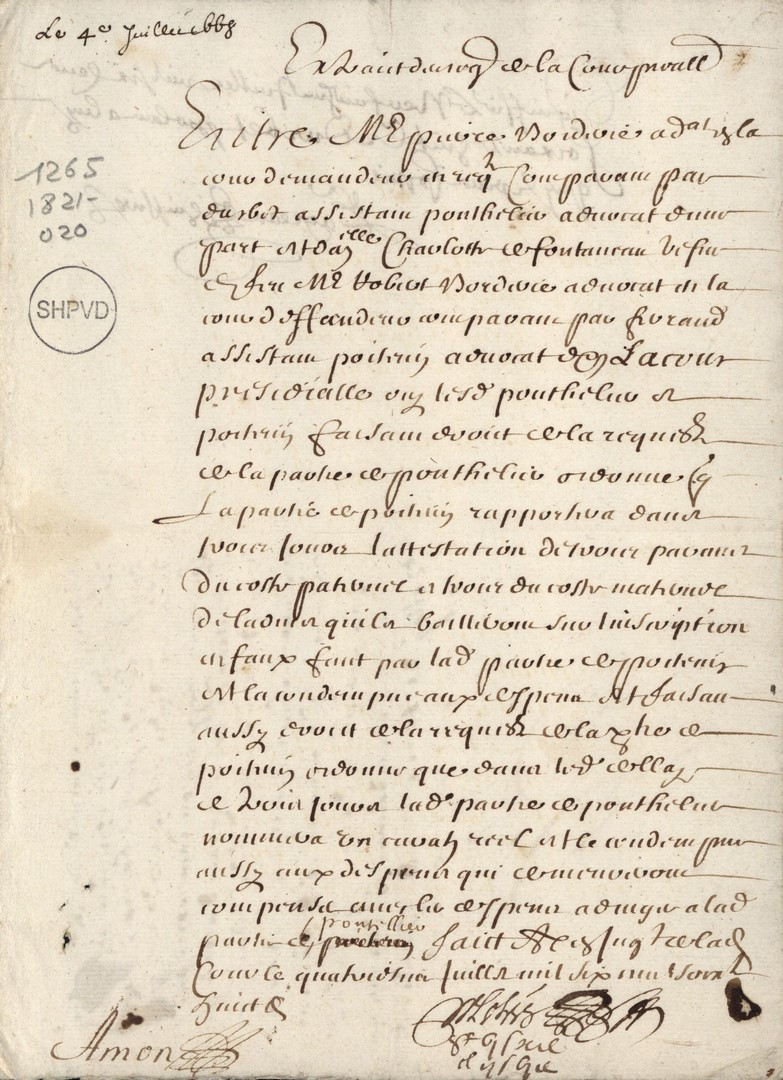 Le 4e Juillet 1668
Extraict du reg de la Cour preall
Entre Me pierre Bordier adat en la
cour demandeur en reqte Comparant par
assistam ponthelier advocat dune
part Et dalle Charlotte de fontaneau vefve
de feu Me Robert Bordier advocat en la
cour deffenderes comparant par fivrand
assistam poitevin advocat La cour
presidialle ouy lesd ponthelier et
poitevin faisant droict de la requeste
de la partie de ponthelier ordonne q
La partie de poitevin rapportera dans
trois jours lattestation de trois parans
du coste paternel et trois du coste maternel
de ladvis quils bailleront sur linscription
en faux faict par lad partie de poitevin
Et la condempne aux despens Et faisant
aussy droict de la requeste de la ptie de
poitevin ordonne que dans led dellay
de trois jours lad partie de ponthelier
nommera un curateur reel Et le condempne
aussy aux despens qui demeureront
compensés avec les despens adjuges a lad
partie de pontellier faict Et en Jugt de lad
Cour le quatriesme Juillet mil six cens soixte
huict
Amon
1265
1821-
020
SHPVD